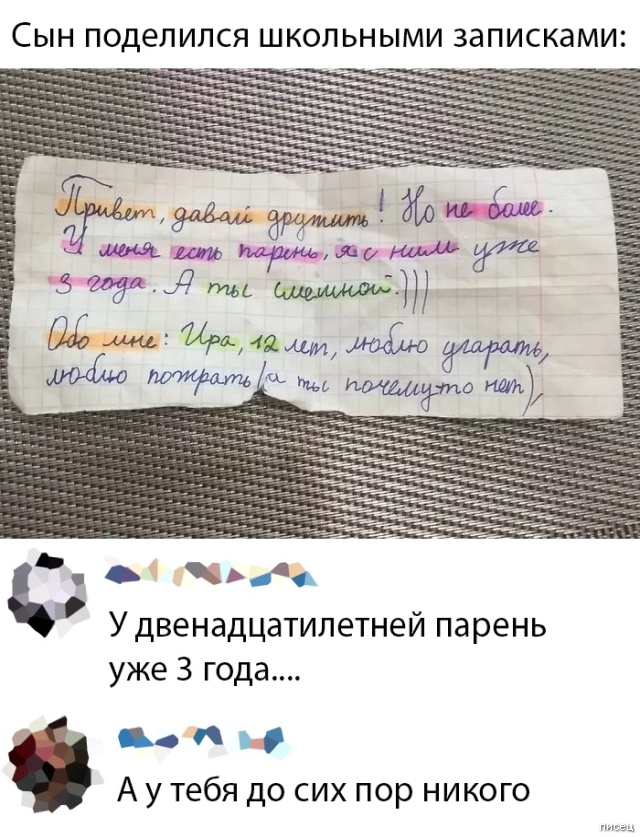 Сын поделился школьными записками:
Привет, давай дружить! Но не более.
У меня есть парень, я с ним уже
3 года. А ты смешной.)))
Обо мне: Ира, 12 лет, люблю угарать,
люблю пожрать (а ты почему-то нет),
У двенадцатилетней парень
уже 3 года....
А у тебя до сих пор никого
писец